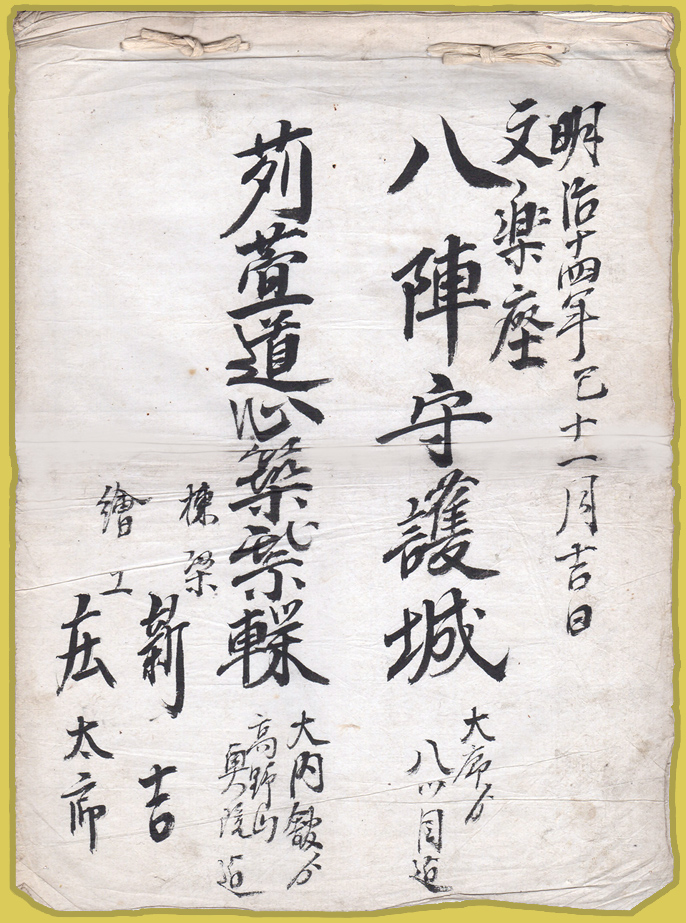 明治十四年巳十一月吉日
文楽座
八陣守護城
大序ゟ
八ツ目迄
苅萱道心築紫𨏍
大内館ゟ
高野山
奥院迄
棟梁
新吉
繪工
庄太郎